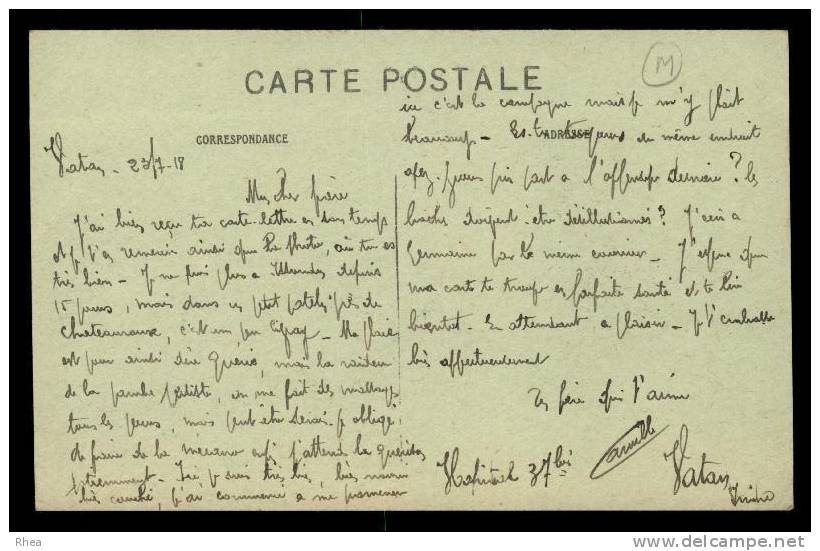 CARTE POSTALE
M
CORRESPONDANCE
ADRESSE
Vatan - 23/7-18
Mon cher frère
J'ai bien reçu ta carte-lettre en son temps
et je t'en remercie ainsi que la Photo, où tu es
très bien - Je ne suis plus à depuis
15 jours, mais dans un petit patelin près de
Chateauroux, c'est un peu - Ma plaie
est pour ainsi dire guérie, mais la raideur
de la jambe persiste, on me fait des massages
tous les jours, mais peut-être serai-je obligé
de faire de la mécano j'attend la guérison
Ici, je suis très bien, bien nourri
bien couché, j'ai commencé à me promener
ici c'est la campagne mais je m'y plait
beaucoup - Es-tu toujours au même endroit
pris part à l'offensive dernière? les
boches doivent être désillusionnés? J'écris à
Germaine par le même courrier - J'espère que
ma carte te trouve en parfaite santé et te lire
bientôt - En attendant ce plaisir - Je t'embrasse
bien affectueusement
Ton frère qui t'aime
Camille
Hopital 37bis
Vatan
Indre
Rhea
www.delcampe.net